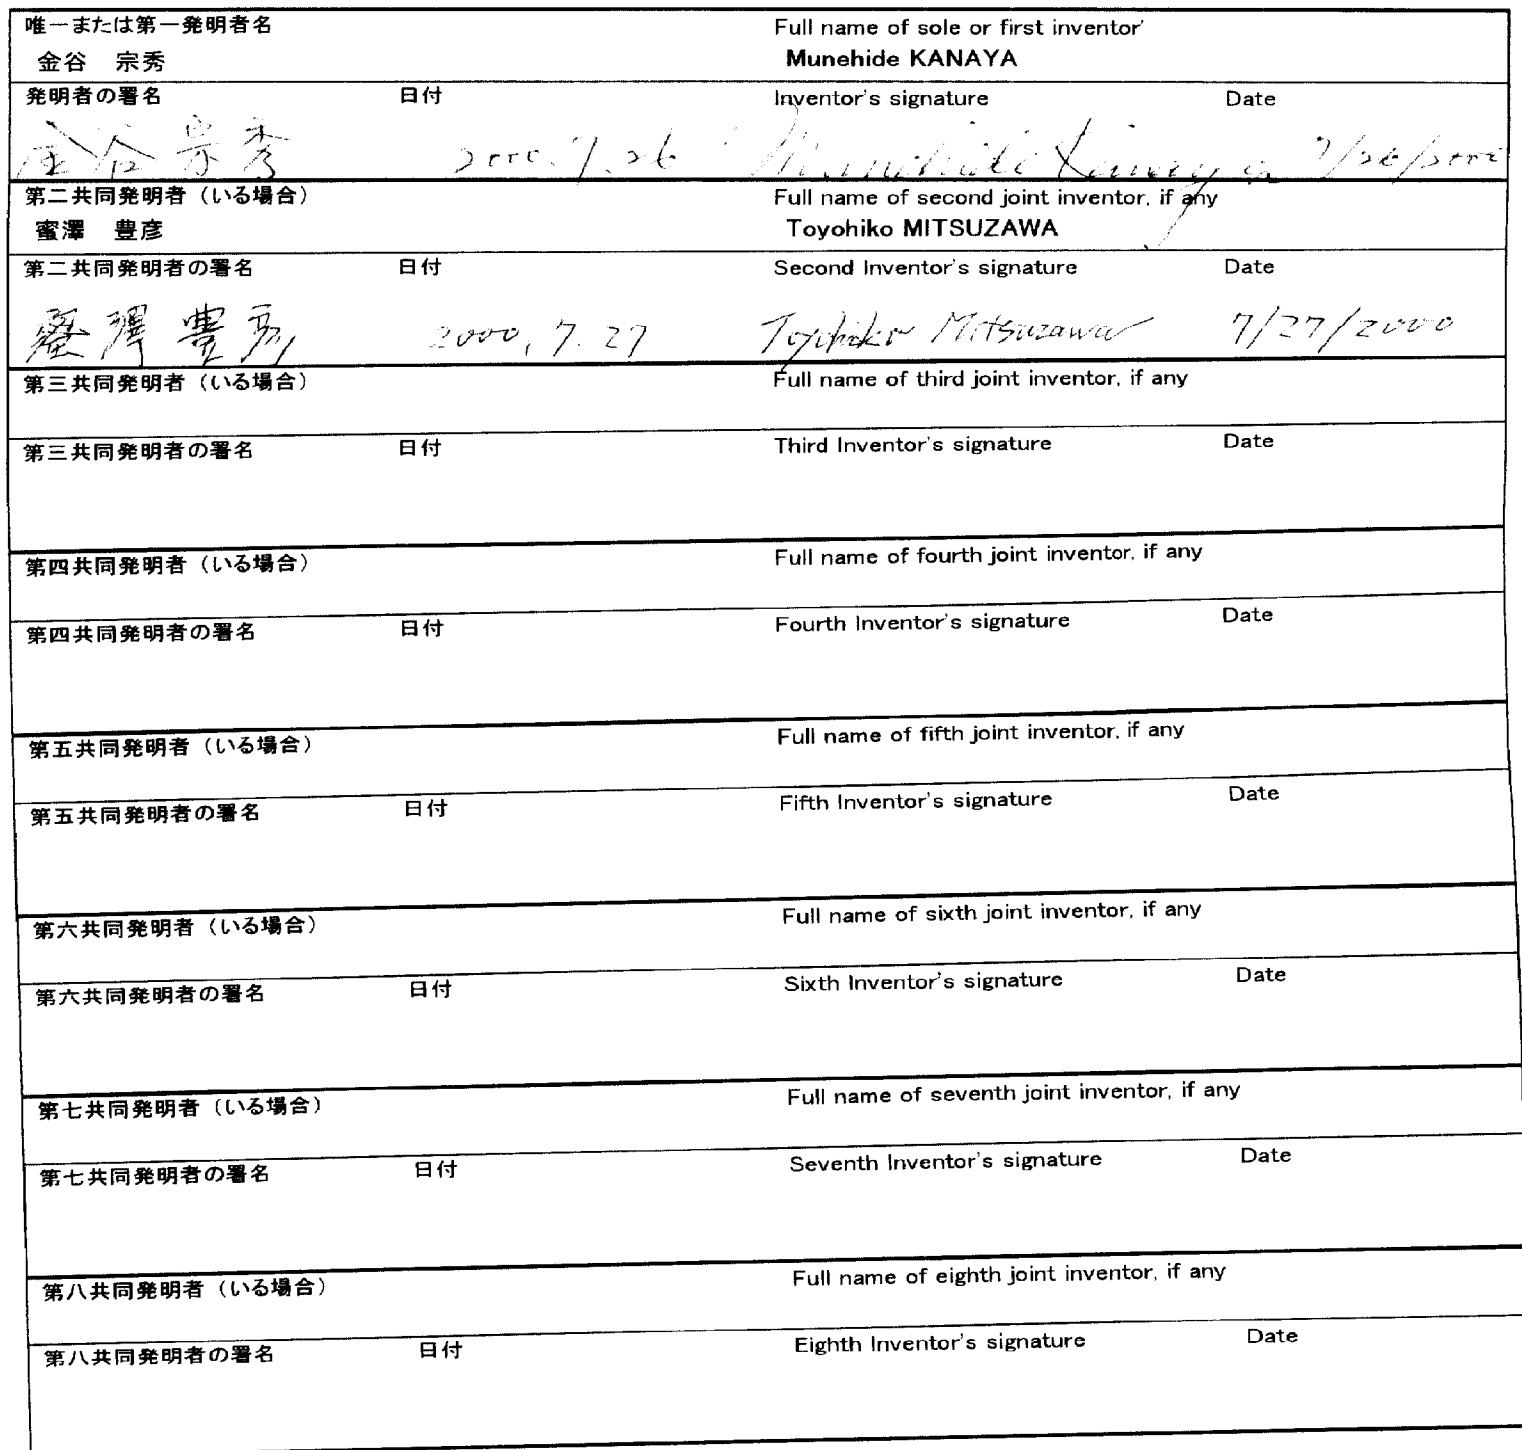 唯一または第一発明者名 Full name of sole or first inventor
金谷 宗秀 Munehide KANAYA
発明者の署名 日付 Inventor's signature Date
金谷宗秀 2000.7.26 Munehide Kanaya 7/26/2000
第二共同発明者（いる場合） Full name of second joint inventor, if any
蜜澤 豊彦 Toyohiko MITSUZAWA
第二共同発明者の署名 日付 Second Inventor's signature Date
蜜澤豊彦 2000.7.27 Toyohiko Mitsuzawa 7/27/2000
第三共同発明者（いる場合） Full name of third joint inventor, if any
第三共同発明者の署名 日付 Third Inventor's signature Date
第四共同発明者（いる場合） Full name of fourth joint inventor, if any
第四共同発明者の署名 日付 Fourth Inventor's signature Date
第五共同発明者（いる場合） Full name of fifth joint inventor, if any
第五共同発明者の署名 日付 Fifth Inventor's signature Date
第六共同発明者（いる場合） Full name of sixth joint inventor, if any
第六共同発明者の署名 日付 Sixth Inventor's signature Date
第七共同発明者（いる場合） Full name of seventh joint inventor, if any
第七共同発明者の署名 日付 Seventh Inventor's signature Date
第八共同発明者（いる場合） Full name of eighth joint inventor, if any
第八共同発明者の署名 日付 Eighth Inventor's signature Date